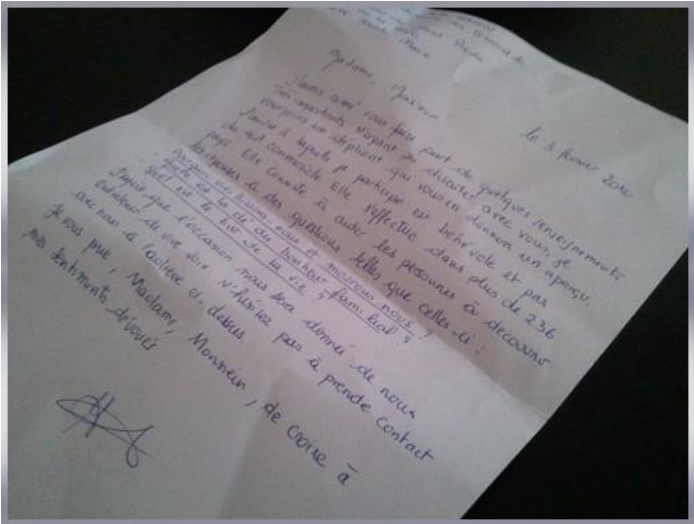 Madame, Monsieur
le 3 février 2012
J'aurais aimé vous faire part de quelques renseignements
très importants n'ayant pu discuter avec vous, je
vous joins un dépliant qui vous en donnera un aperçu.
l'activité à laquelle je participe est bénévole et pas
du tout commerciale. Elle s'effectue dans plus de 236
pays. Elle consiste à aider les personnes à découvrir
les réponses à des questions telles que celles-ci :
Pourquoi vieillissons nous et mourons-nous ?
Quelle est la clé du bonheur familial ?
Quel est le but de la vie ?
J'espère que l'occasion nous sera donnée de nous
entretenir de vive voix. N'hésitez pas à prendre contact
avec nous à l'adresse ci-dessus.
Je vous prie, Madame, Monsieur, de croire à
mes sentiments dévoués